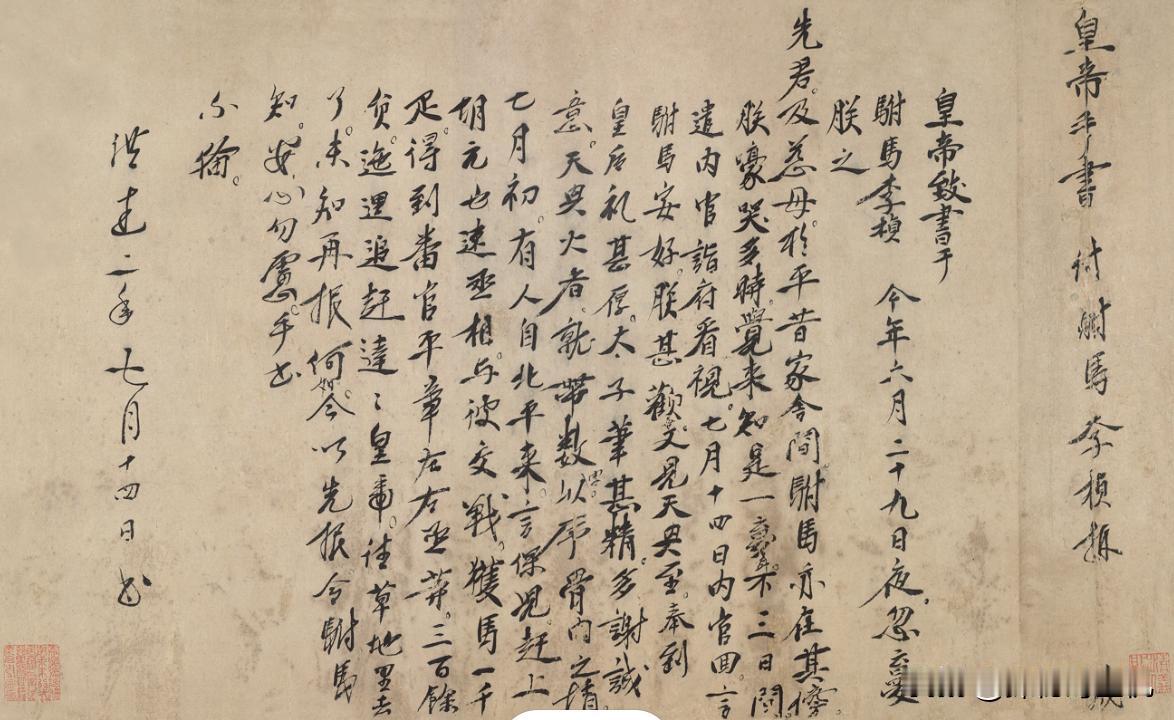 皇帝手書 付駙馬李楨拆
皇帝致書于
駙馬李楨 今年六月二十九日夜。忽夢
朕之
先君。及慈母。於平昔家舍間。駙馬亦在其傍。
朕嚎哭多時。覺來知是一夢。不三日間
遣內官詣府看視。七月十四日內官回言
駙馬安好。朕甚歡。又見天與至。奉到
皇后礼甚厚。太子筆甚精。多謝誠
意。天與火者。就帶數以序骨肉之情。
七月初。有人自北平來。言保兒赶上
胡元也速丞相。与彼交戰。獲馬一千
疋。得到番官平章右右丞等。三百餘
員。迤逦追赶達達皇帝。往草地里去
了。未知再报何如。今以先报。令駙馬
知。安心勿慮。手書
不備。
洪武二年七月十四日書